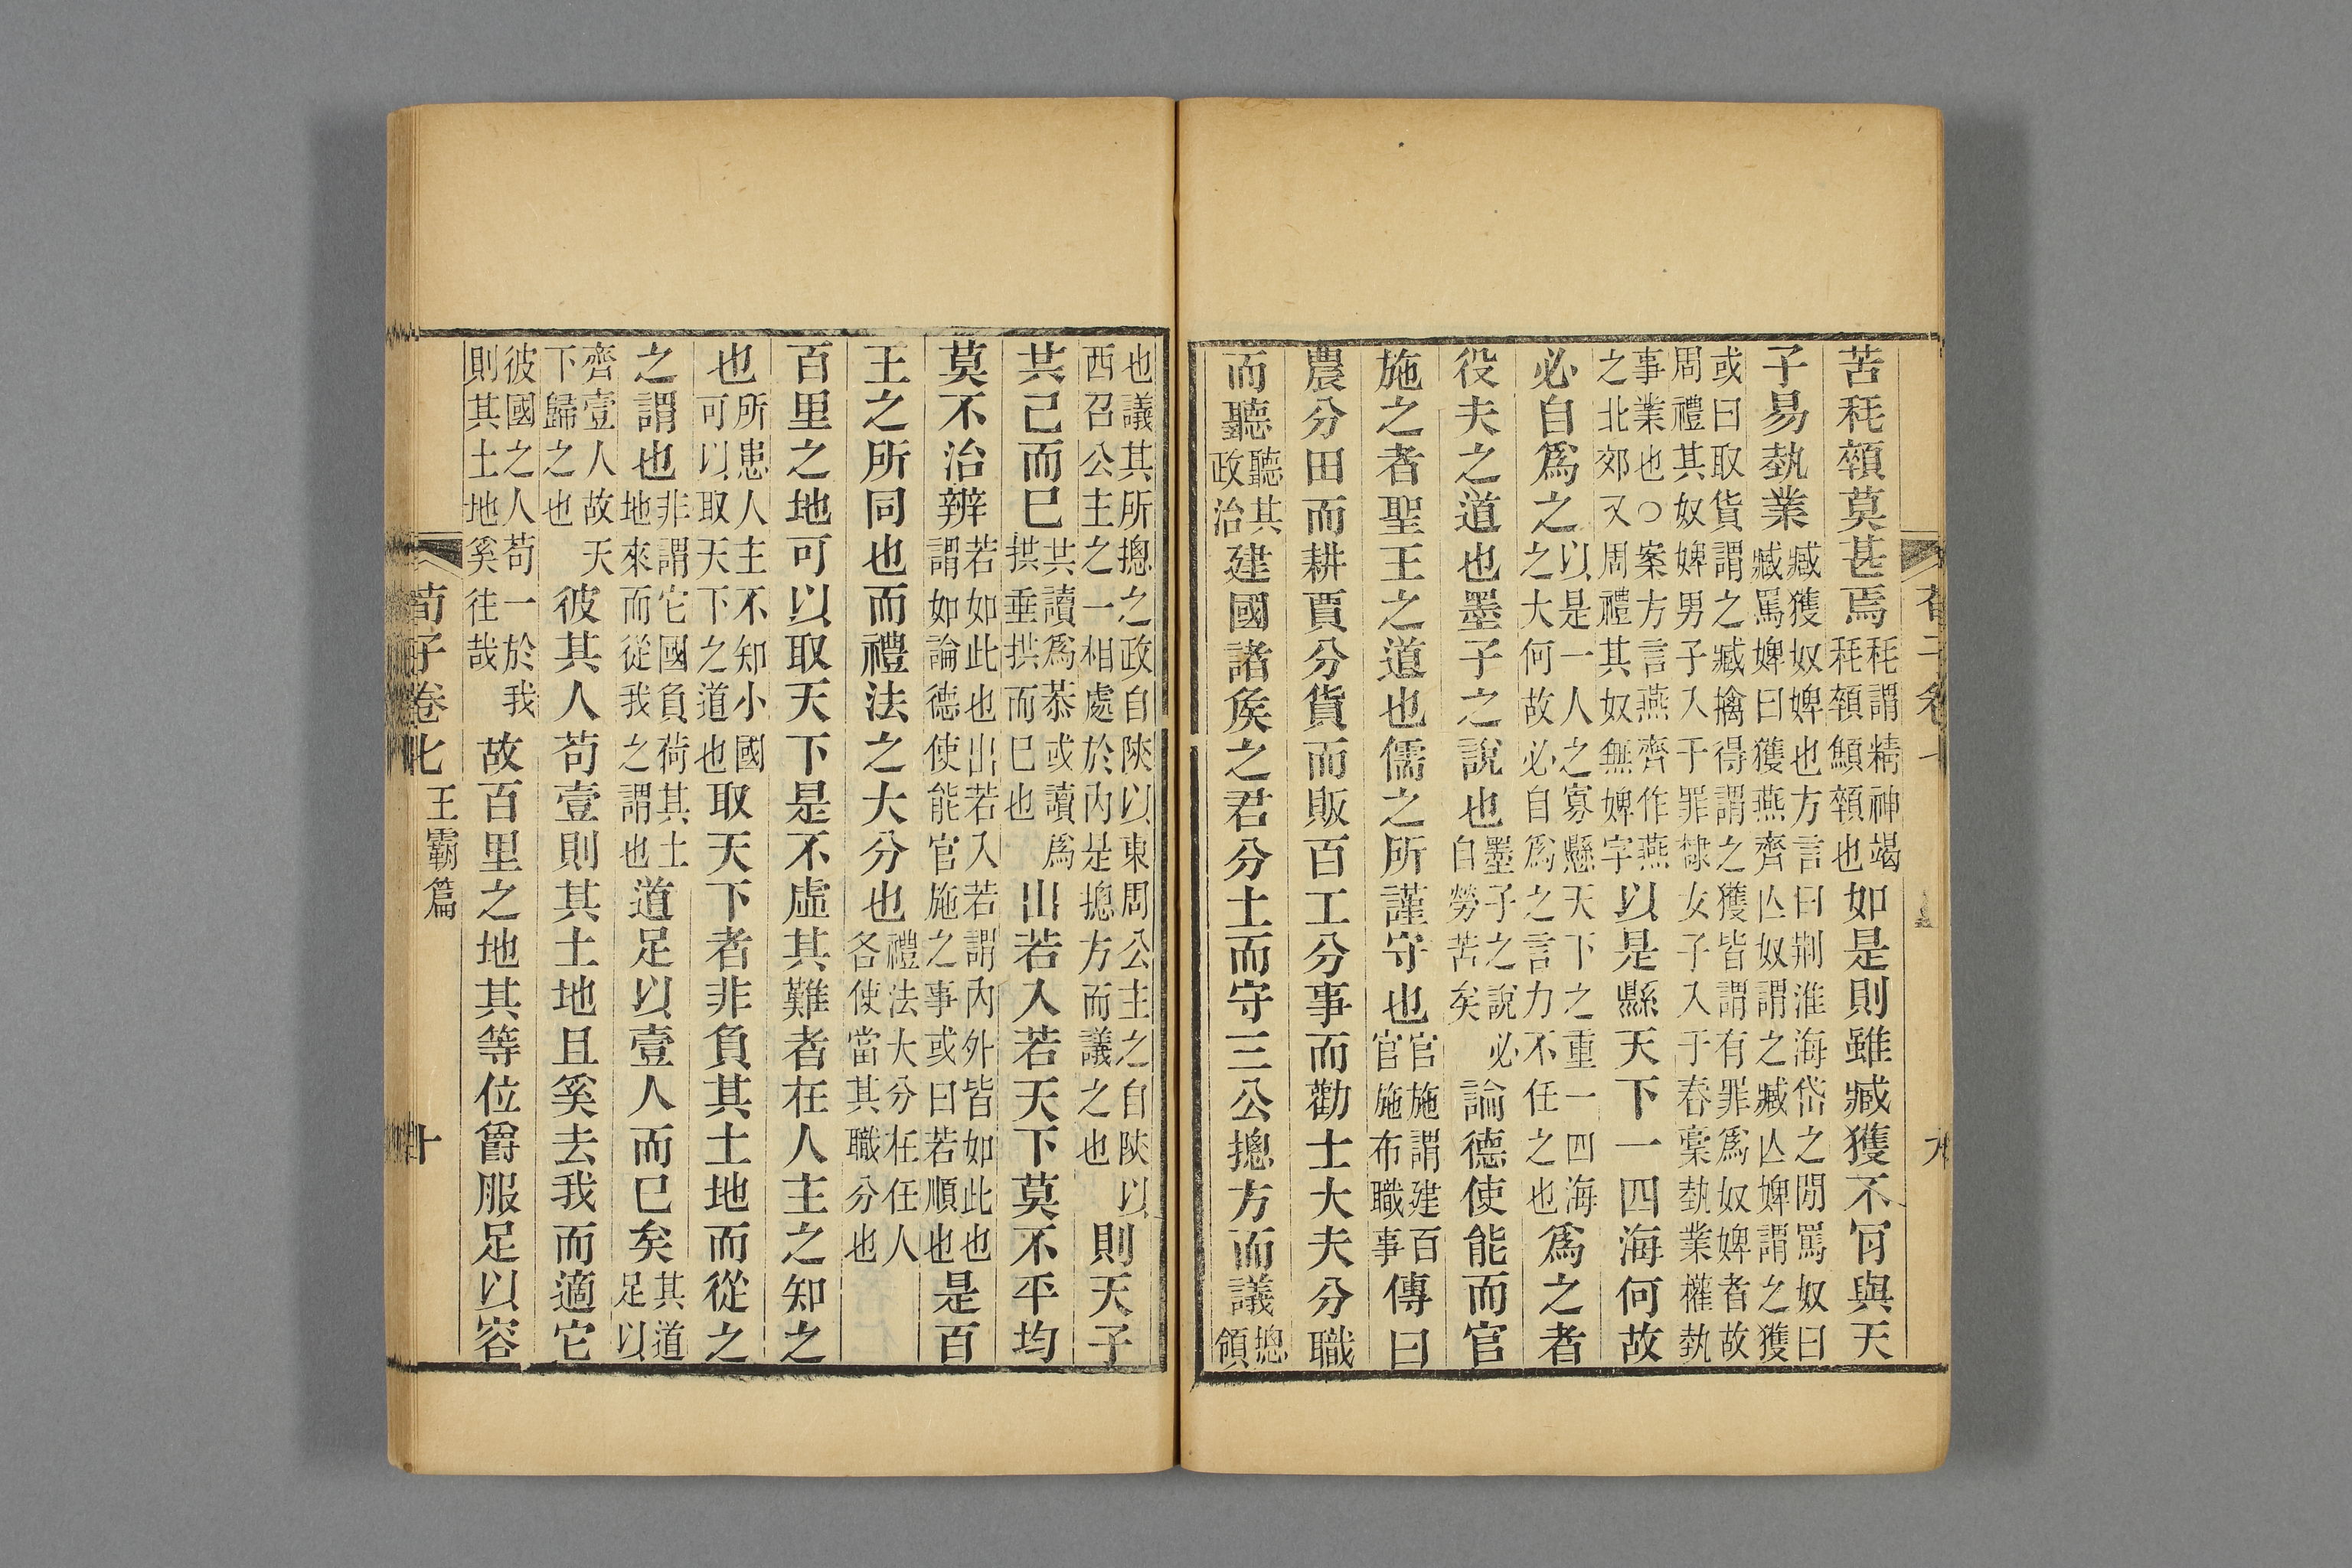 苦秏顇莫甚焉秏謂精神竭秏顇顦顇也如是則雖臧獲不肎與天
子易埶業臧獲奴婢也方言曰荆淮海岱之閒罵奴曰臧罵婢曰獲燕齊亾奴謂之臧亾婢謂之獲
或曰取貨謂之臧擒得謂之獲皆謂有罪爲奴婢者故周禮其奴婢男子入于罪隸女子入于舂槀埶業權埶
事業也○案方言燕齊作燕之北郊又周禮其奴無婢字以是縣天下一四海何故
必自爲之以是一人之寡懸天下之重一四海之大何故必自爲之言力不任之也爲之者
役夫之道也墨子之說也墨子之說必自勞苦矣論德使能而官
施之者聖王之道也儒之所謹守也官施謂建百官施布職事傳曰
農分田而耕賈分貨而販百工分事而勸士大夫分職
而聽聽其政治建國諸矦之君分土而守三公摠方而議摠領
也議其所摠之政自陝以東周公主之自陝以西召公主之一相處於內是摠方而議之也則天子
共己而已共讀爲恭或讀爲拱垂拱而已也出若入若天下莫不平均
莫不治辨若如此也出若入若謂內外皆如此也謂如論德使能官施之事或曰若順也是百
王之所同也而禮法之大分也禮法大分在任人各使當其職分也
百里之地可以取天下是不虛其難者在人主之知之
也所患人主不知小國可以取天下之道也取天下者非負其土地而從之
之謂也非謂它國負荷其土地來而從我之謂也道足以壹人而已矣其道足以
齊壹人故天下歸之也彼其人苟壹則其土地且奚去我而適它
彼國之人苟一於我則其土地奚往哉故百里之地其等位爵服足以容
荀子卷七 王霸篇 十